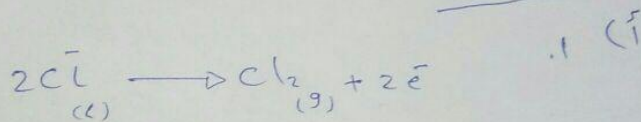 2Cl⁻(l) ⟶ Cl₂(g) + 2e⁻